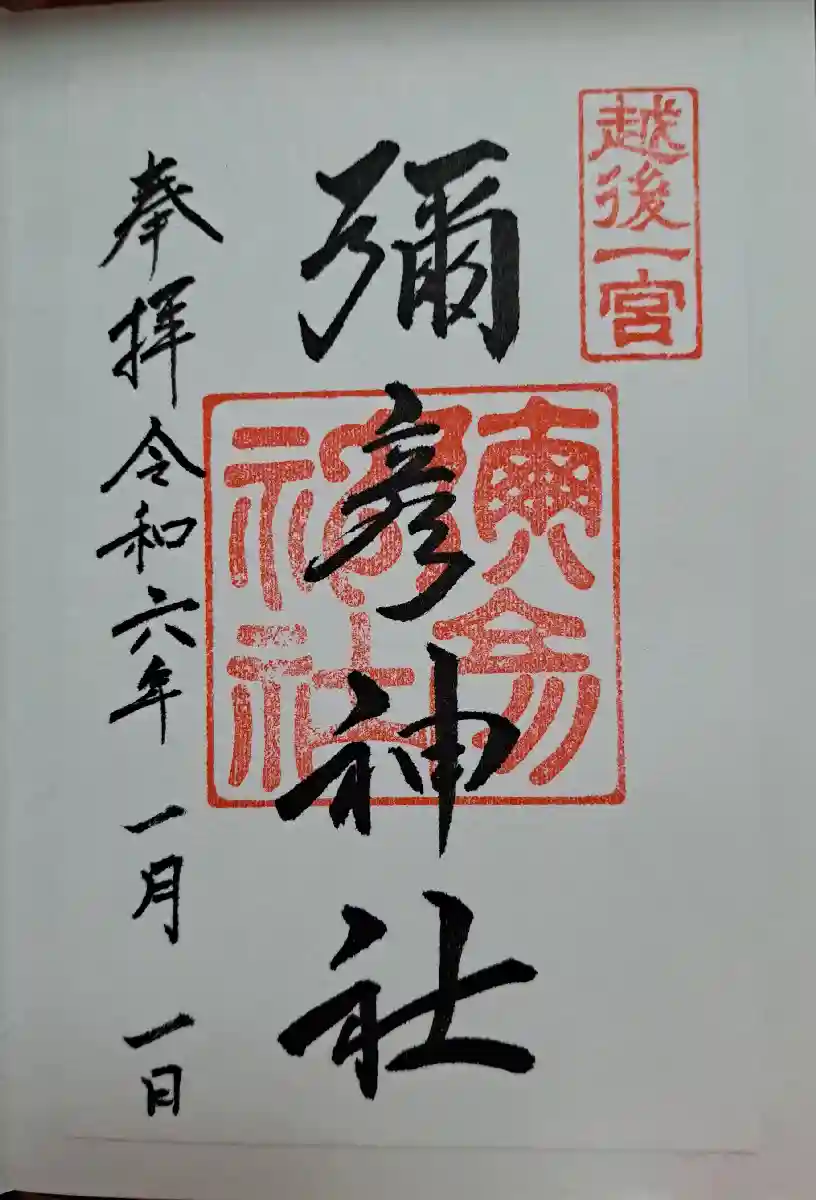 越後一宮
彌彦神社
彌彦神社
奉拝令和六年一月一日